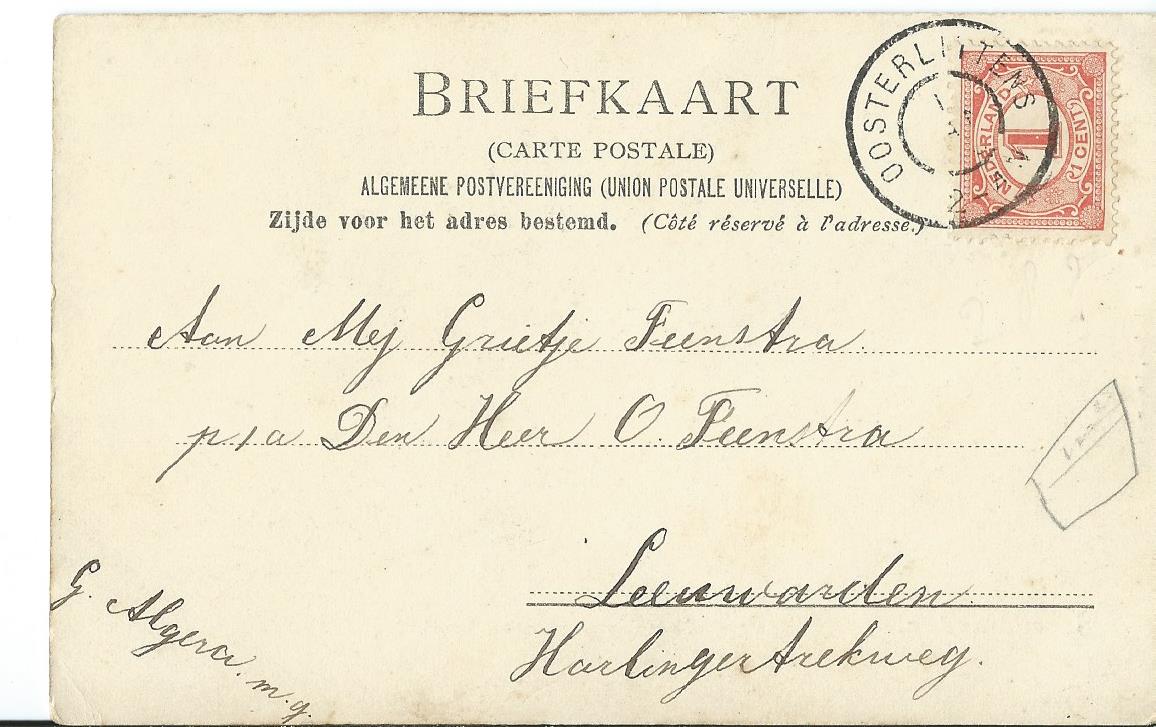 BRIEFKAART
(CARTE POSTALE)
ALGEMEENE POSTVEREENIGING (UNION POSTALE UNIVERSELLE)
Zijde voor het adres bestemd. (Côté réservé à l'adresse.)
OOSTERLITTENS
NEDERLAND
1
1 CENT
Aan Mej Grietje Feenstra
p/a Den Heer O. Feenstra
Leeuwarden
Harlingertrekweg.
G. Algera. m.g.